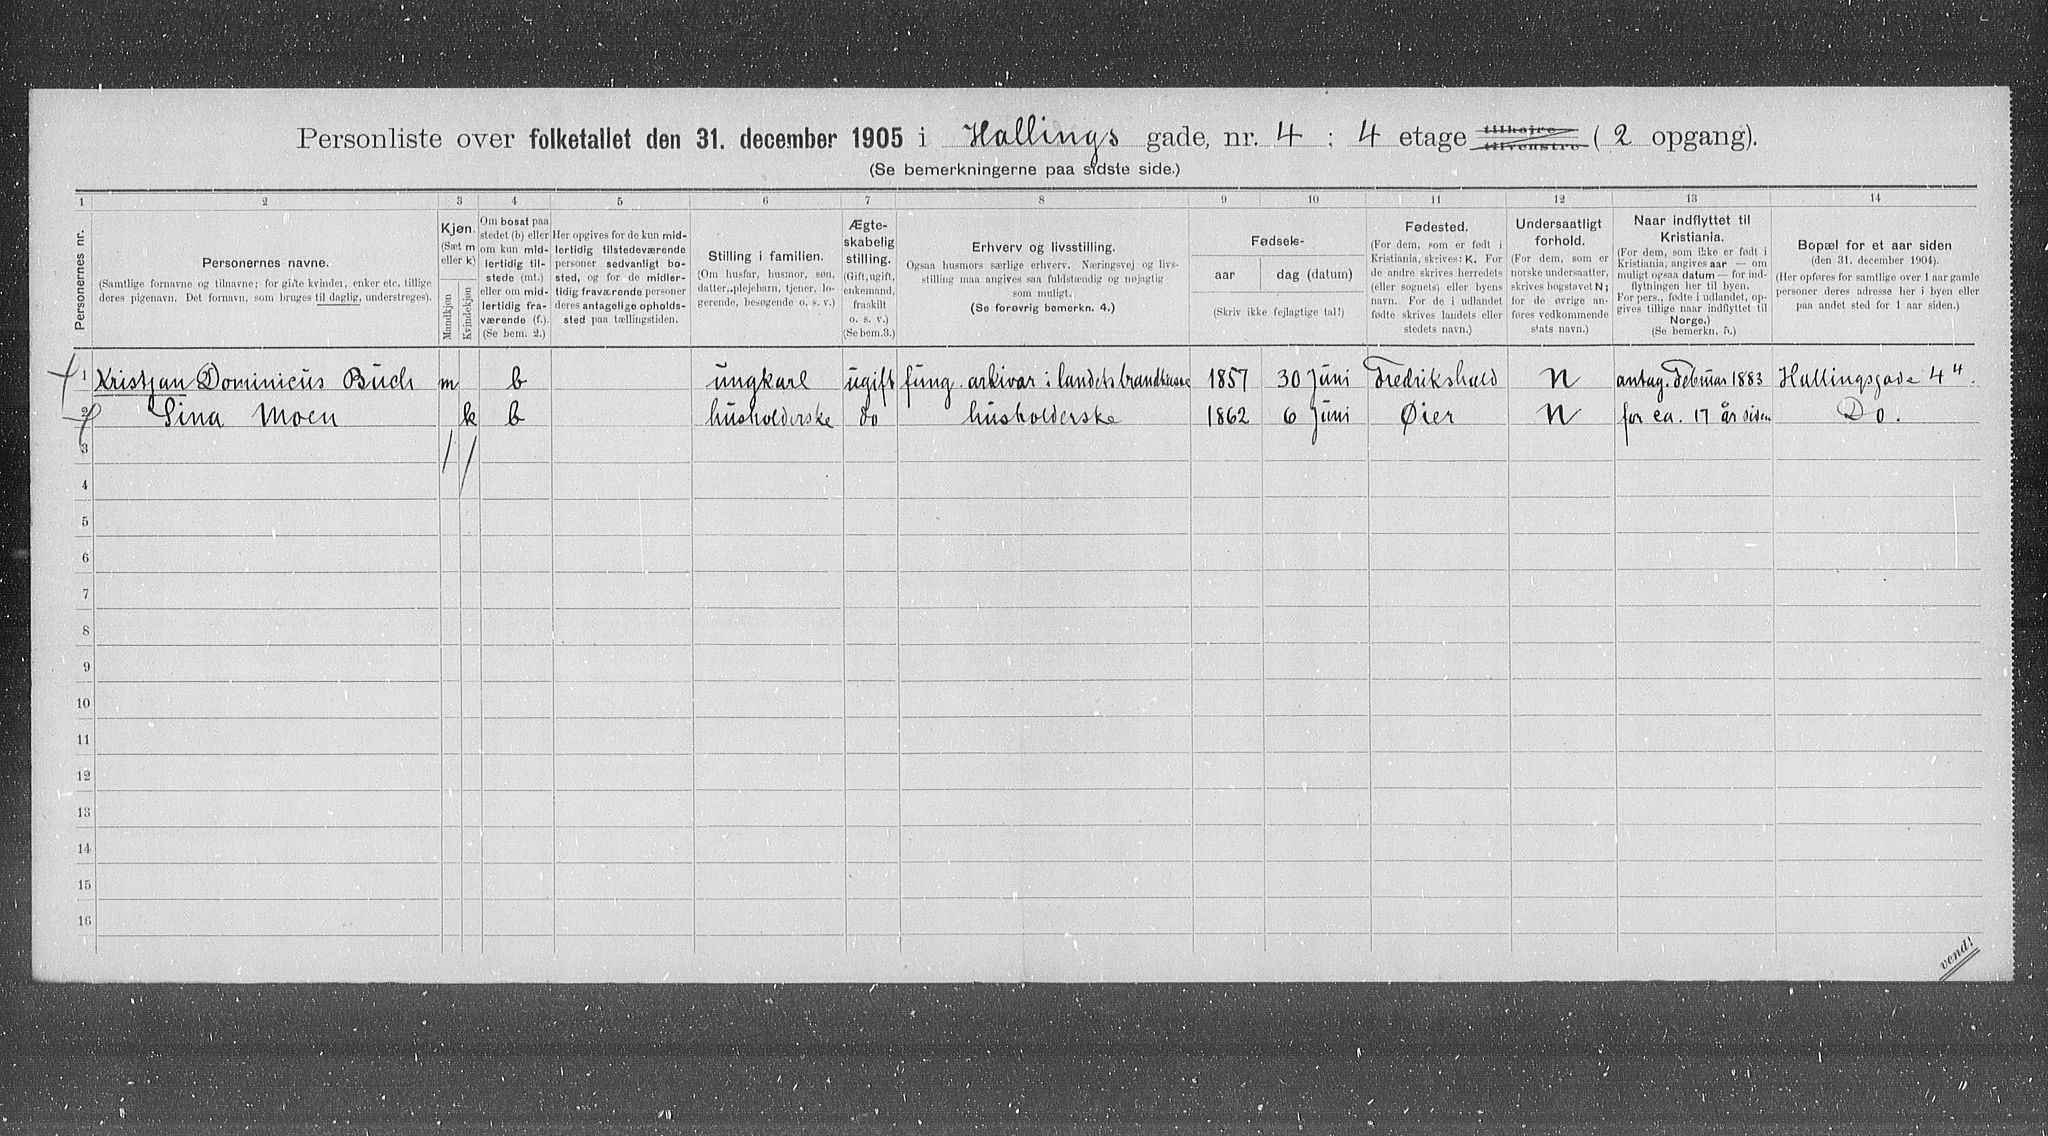 Personliste over folketallet den 31. december 1905 i Hallings gade, nr. 4 ; 4 etage tilhøjre tilvenstre ( 2 opgang).
(Se bemerkningerne paa sidste side.)
1 2 3 4 5 6 7 8 9 10 11 12 13 14
Personernes nr.
Personernes navne.
(Samtlige fornavne og tilnavne; for gifte kvinder, enker etc. tillige
deres pigenavn. Det fornavn, som bruges til daglig, understreges).
Kjøn.
(Sæt m
eller k)
Mandkjøn
Kvindekjøn
Om bosat paa
stedet (b) eller
om kun mid-
lertidig til-
stede (mt.)
eller om mid-
lertidig fra-
værende (f.).
(Se bem. 2.)
Her opgives for de kun mid-
lertidig tilstedeværende
personer sedvanligt bo-
sted, og for de midler-
tidig fraværende personer
deres antagelige opholds-
sted paa tællingstiden.
Stilling i familien.
(Om husfar, husmor, søn,
datter, plejebarn, tjener, lo-
gerende, besøgende o. s. v.)
Ægte-
skabelig
stilling.
(Gift, ugift,
enkemand,
fraskilt
o. s. v.)
(Se bem.3.)
Erhverv og livsstilling.
Ogsaa husmors særlige erhverv. Næringsvej og livs-
stilling maa angives saa fuldstændig og nøjagtig
som muligt.
(Se forøvrig bemerkn. 4.)
Fødsels-
aar
dag (datum)
(Skriv ikke fejlagtige tal!)
Fødested.
(For dem, som er født i
Kristiania, skrives: K. For
de andre skrives herredets
(eller sognets) eller byens
navn. For de i udlandet
fødte skrives landets eller
stedets navn.)
Undersaatligt
forhold.
(For dem, som er
norske undersaatter,
skrives bogstavet N;
for de øvrige an-
føres vedkommende
stats navn.)
Naar indflyttet til
Kristiania.
(For dem, som ikke er født i
Kristiania, angives aar — om
muligt ogsaa datum — for ind-
flytningen her til byen.
For pers., fødte i udlandet, op-
gives tillige naar indflyttet til
Norge.)
(Se bemerkn. 5.)
Bopæl for et aar siden
(den 31. december 1904).
(Her opføres for samtlige over 1 aar gamle
personer deres adresse her i byen eller
paa andet sted for 1 aar siden.)
1 Kristjan Dominicus Buch m b ungkarl ugift fung. arkivar i landets brandkasse 1857 30 Juni Fredrikshald N antag. Februar 1883 Hallingsgade 4 4.
2 Sina Moen k b husholderske do husholderske 1862 6 Juni Øier N for ca. 17 år siden Do.
3
4
5
6
7
8
9
10
11
12
13
14
15
16
vend!